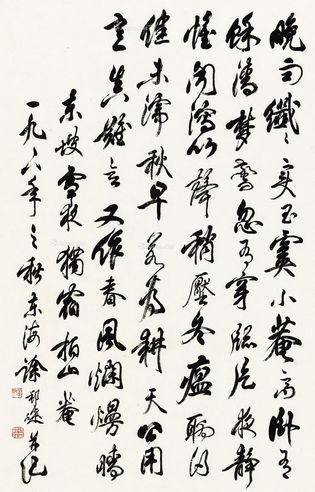 晚雨纖々變玉霙小菴高卧有
餘清夢驚忽有穿牕片夜静
惟聞瀉竹聲稍壓冬瘟聊得
健未濡秋旱若為耕天公用
意真難會又作春風爛熳晴
東坡雪夜獨宿柏仙菴
一九八六年之秋東海徐邦達并記